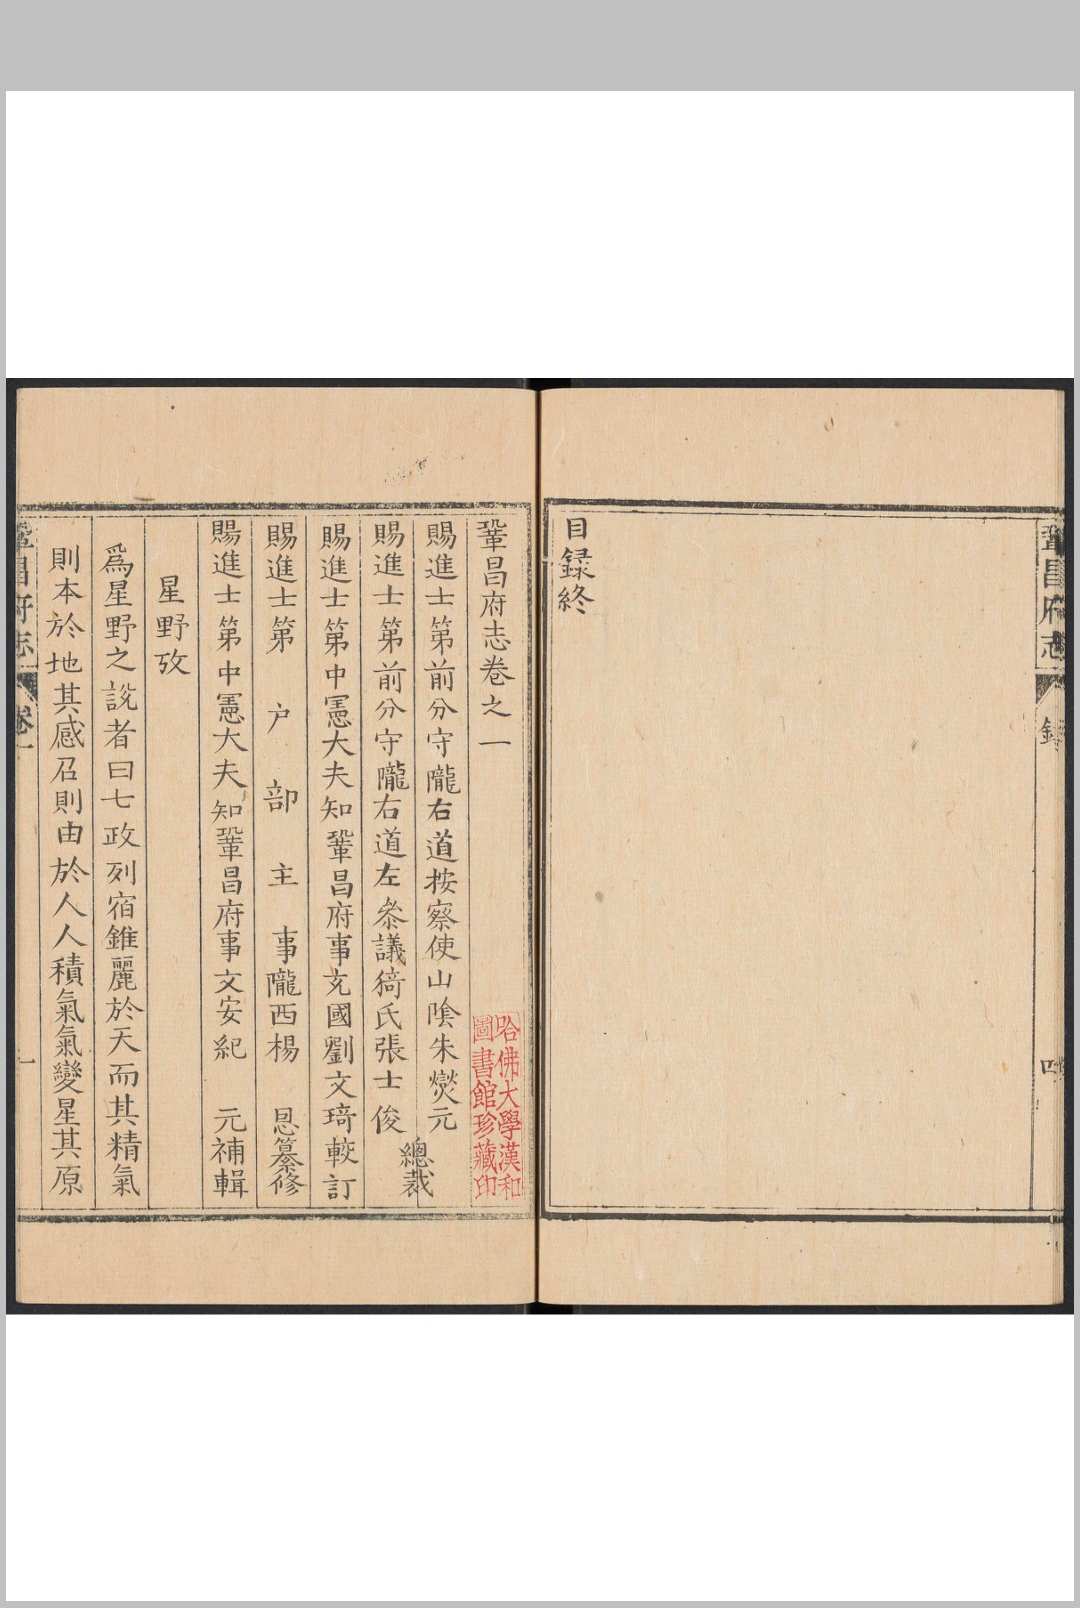 目録終
鞏昌府志卷之一
賜進士第前分守隴右道按察使山隂朱燮元
賜進士第前分守隴右道左叅議猗氏張士俊
總裁
賜進士第中憲大夫知鞏昌府事兗國劉文琦較訂
賜進士第户部主事隴西楊恩纂修
賜進士第中憲大夫知鞏昌府事文安紀元補輯
星野攷
爲星野之説者曰七政列宿錐麗於天而其精氣
則本於地其感召則由於人人積氣氣變星其原
鞏昌府志
卷一
一
鞏昌府志
哈佛大學漢和
圖書館珍藏印